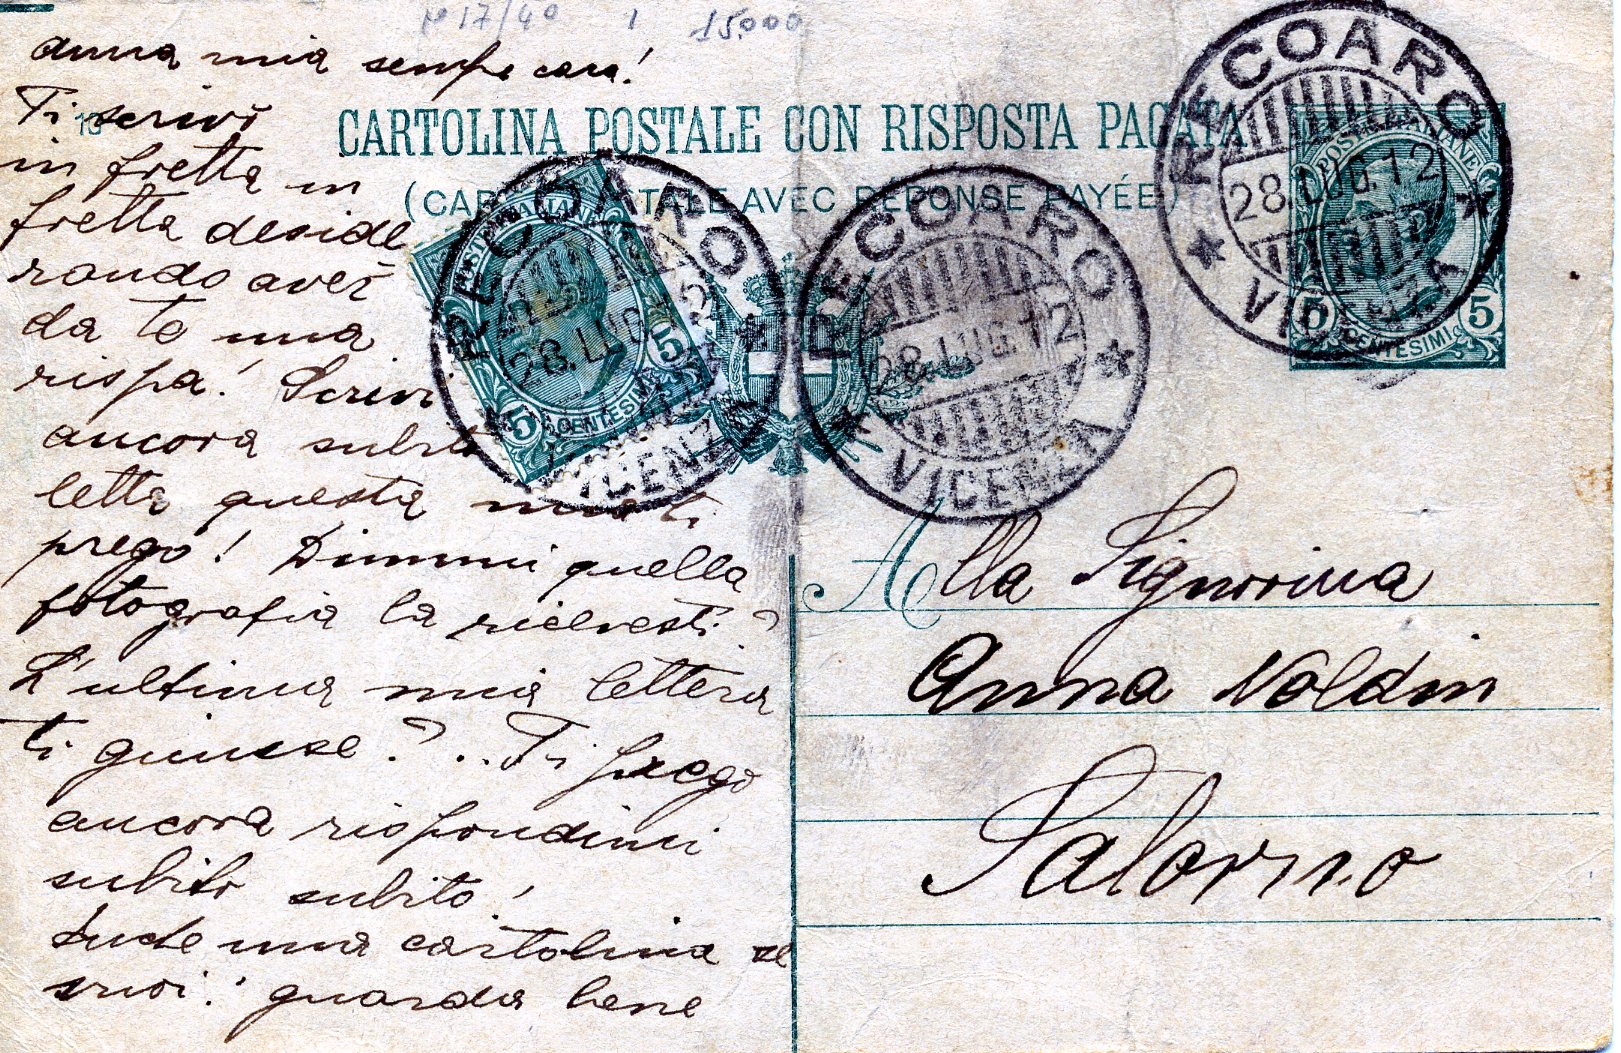 N 17/40 1 15000
anna mia sempre cara!
Ti scrivo
in fretta in
fretta deside
rando aver
da te una
rispa! Scrivi
ancora subito
letta questa mia ti
prego! Dimmi quella
fotografia la ricevesti?
L'ultima mia lettera
ti giunse? .. Ti prego
ancora rispondimi
subito subito!
una cartolina se
vuoi! guarda bene
CARTOLINA POSTALE CON RISPOSTA PAGATA
(CARTE POSTALE AVEC RÉPONSE PAYÉE)
RECOARO
28.LUG.12
VICENZA
POSTE ITALIANE
5 CENTESIMI 5
RECOARO
28.LUG.12
VICENZA
RECOARO
28.LUG.12
VICENZA
POSTE ITALIANE
5 CENTESIMI 5
Alla Signorina
Anna Noldin
Salorno